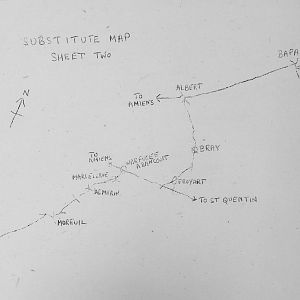 SUBSTITUTE MAP
SHEET TWO
N
BAPA
ALBERT
TO
AMIENS
BRAY
TO
AMIENS
WARFUSEE
ABANCOURT
MARCELCAVE
DEMUIN
PROYART
TO ST QUENTIN
MOREUIL